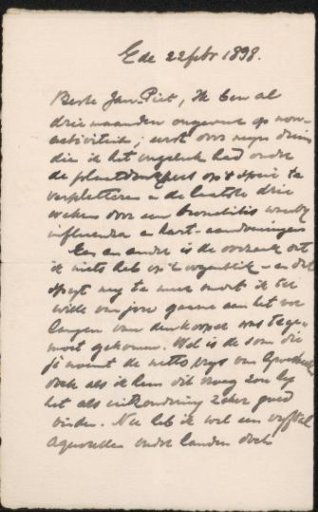 Ede 22 febr 1898.
Beste Jan Piet, Ik ben al
drie maanden ongeveer op non-
activiteit; eerst door mijn duim
die ik het ongeluk had onder
de plaatdrukpers op 't spie te
verpletteren en de laatste drie
weken door een bronchitis
influenza en hart-aandoeningen
Een en ander is de oorzaak dat
ik niets heb op 't oogenblik - en dat
spijt mij te meer want ik
wilde u gaarne aan het ver
langen van den kooper
moet gekomen. Wel is de som die
je noemt de netto prijs van
doch als ik hem dit vroeg zou hij
het als uitzondering zeker goed
vinden. Nu heb ik wel een vijftal
aquarellen onder handen doch